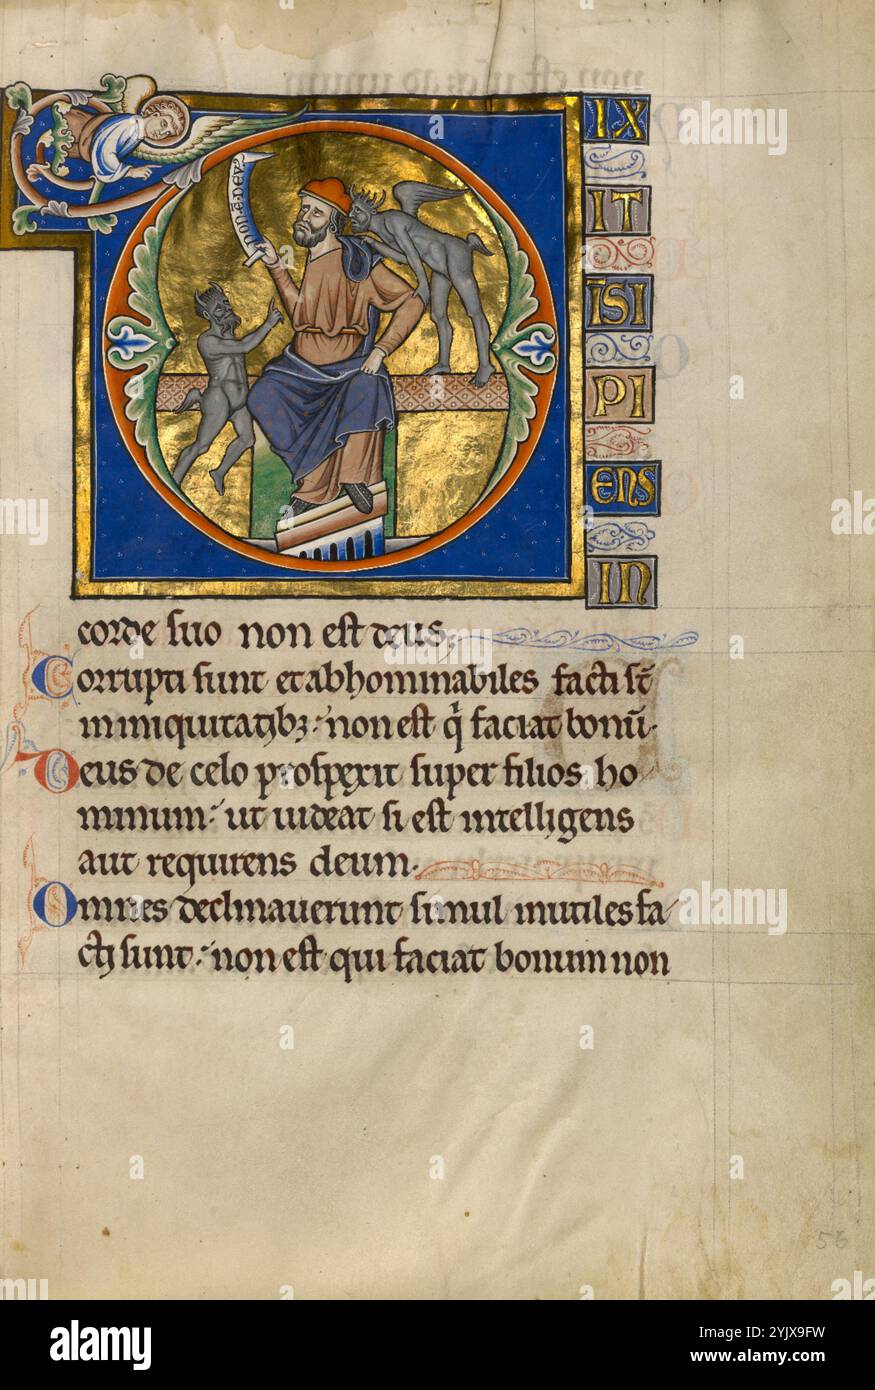 D
IX
IT
ĪSI
PI
ENS
IN
non ē deus
corde suo non est deus.
Corrupti sunt et abhominabiles facti st̄
in iniquitatibꝫ: non est q̇ faciat bonū.
Deus de celo prospexit super filios ho
minum: ut uideat si est intelligens
aut requirens deum.
Omnes declinauerunt simul inutiles fa
cti sunt: non est qui faciat bonum non
56
alamy
Image ID: 2YJX9FW
www.alamy.com